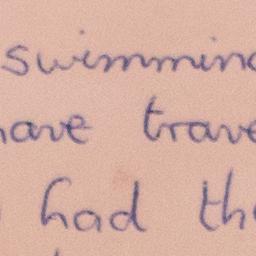 swimming
have trave
had th